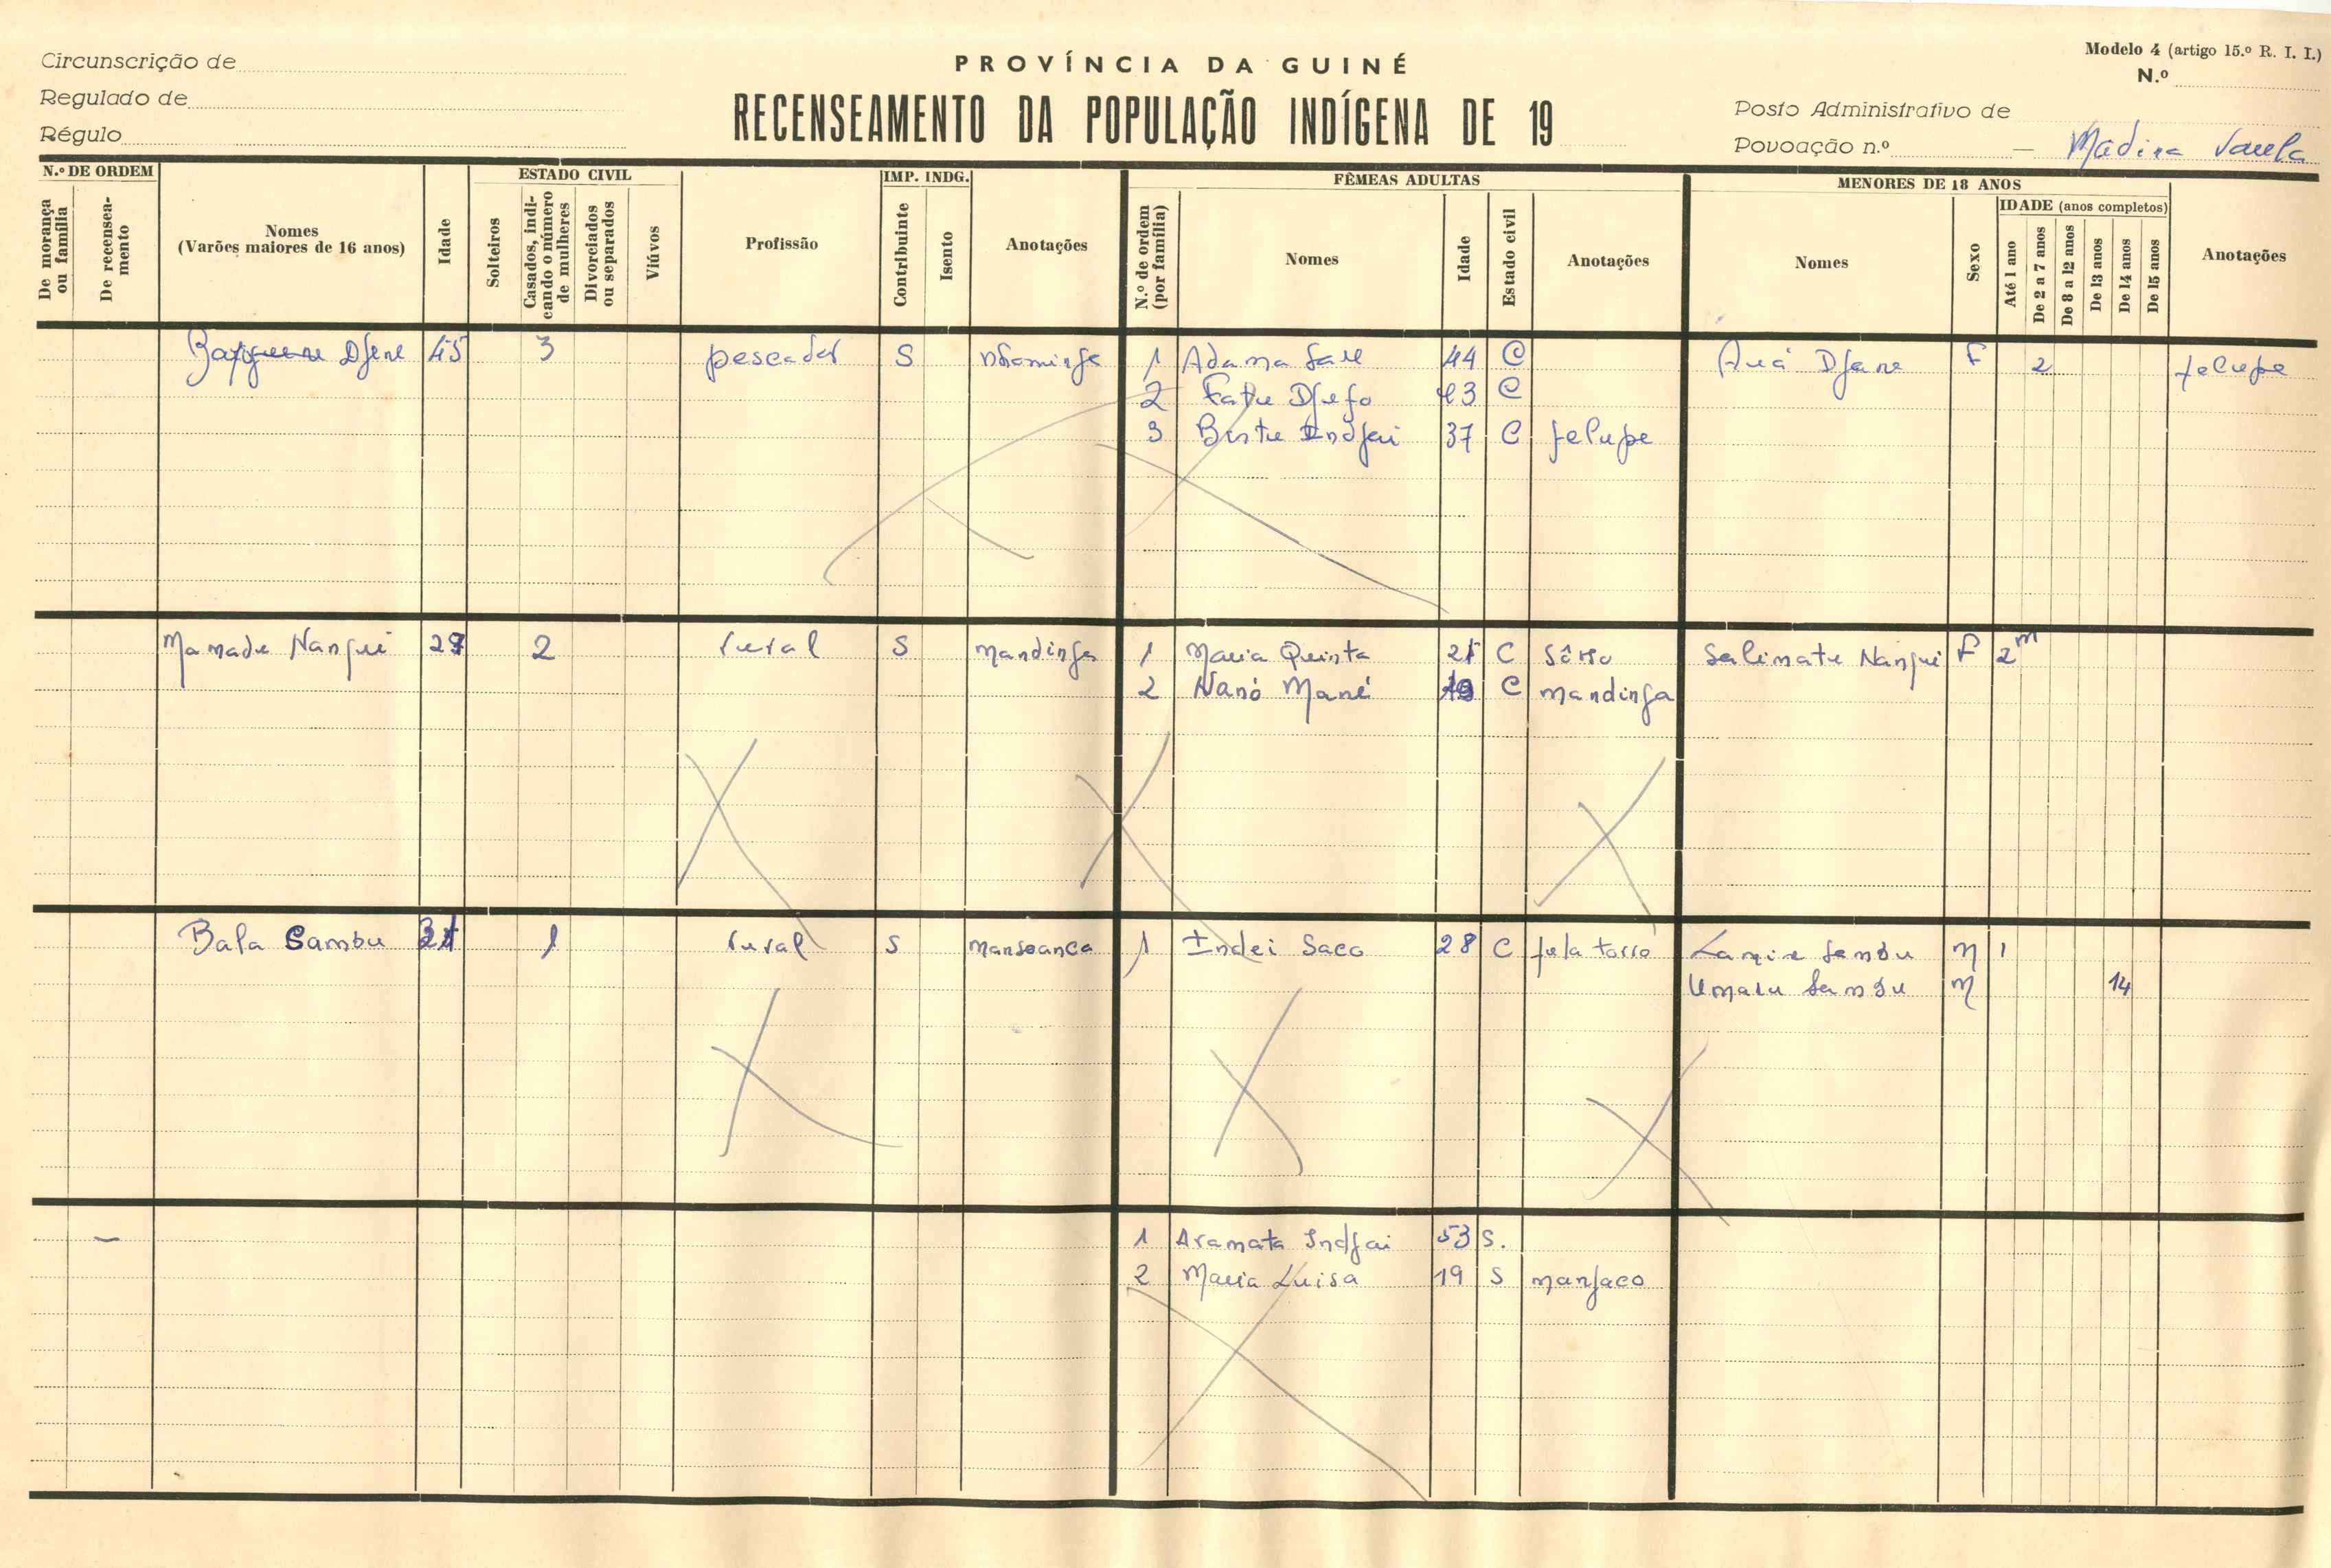 Circunscrição de
Regulado de
Régulo
PROVÍNCIA DA GUINÉ
RECENSEAMENTO DA POPULAÇÃO INDÍGENA DE 19
Modelo 4 (artigo 15.º R. I. I.)
N.º
Posto Administrativo de
Povoação n.º — Madina
N.º DE ORDEM
De morança ou família
De recenseamento
Nomes
(Varões maiores de 16 anos)
Idade
ESTADO CIVIL
Solteiros
Casados, indicando o número de mulheres
Divorciados ou separados
Viúvos
Profissão
IMP. INDG.
Contribuinte
Isento
Anotações
FÊMEAS ADULTAS
N.º de ordem (por família)
Nomes
Idade
Estado civil
Anotações
MENORES DE 18 ANOS
Nomes
Sexo
IDADE (anos completos)
Até 1 ano
De 2 a 7 anos
De 8 a 12 anos
De 13 anos
De 14 anos
De 15 anos
Anotações
45 3 pescador S 1 Adama 44 C F 2 felupe
2 Fatu 43 C
3 Indjai 37 C felupe
Mamadu Nanqui 2 rural S mandinga 1 Maria Quinta C Salimatu Nanqui F 2m
2 Nanó Mané C mandinga
Bala Sambu 1 rural S mansoanca 1 Indei Saco 28 C Sambu M 1
Umaru Sambu M 14
1 Aramata Indjai 53 S.
2 Maria Luisa 19 S manjaco